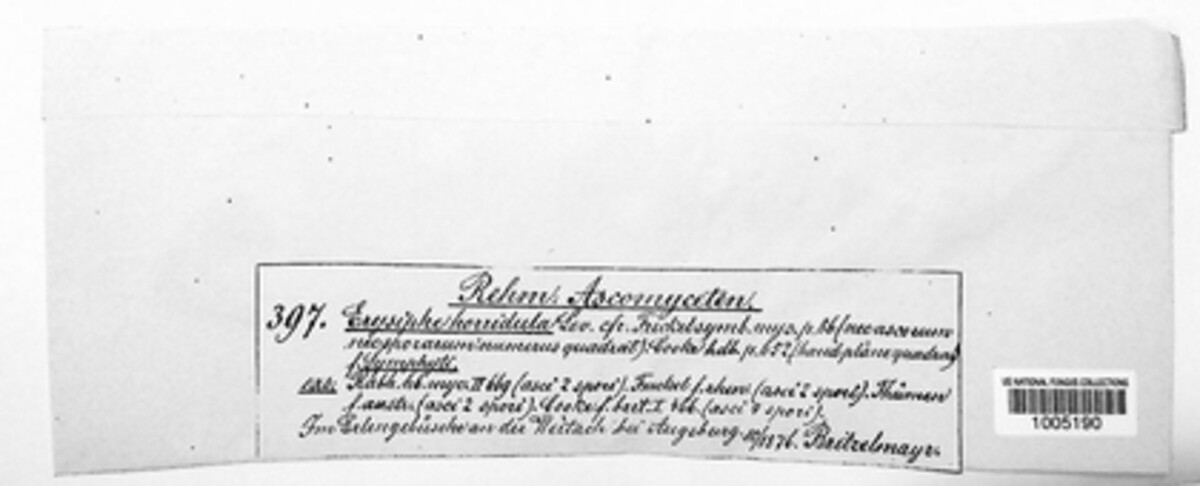 Rehm, Ascomyceten.
397. Erysiphe horridula Lev. cfr. Fuckel symb. myc. p. 86 (nec ascorum
nec sporarum numerus quadrat). Cooke hdb. p. 652 (haud plane quadrat)
f. Symphyti.
Rabh. hb. myc. II 669 (asci 2 spori). Fuckel f. rhen. (asci 2 spori). Thümen
f. austr. (asci 2 spori). Cooke f. brit. I (asci spori).
Im Erlengebüsche an der Wertach bei Augsburg 76. Britzelmayr.
US NATIONAL FUNGUS COLLECTIONS
1005190